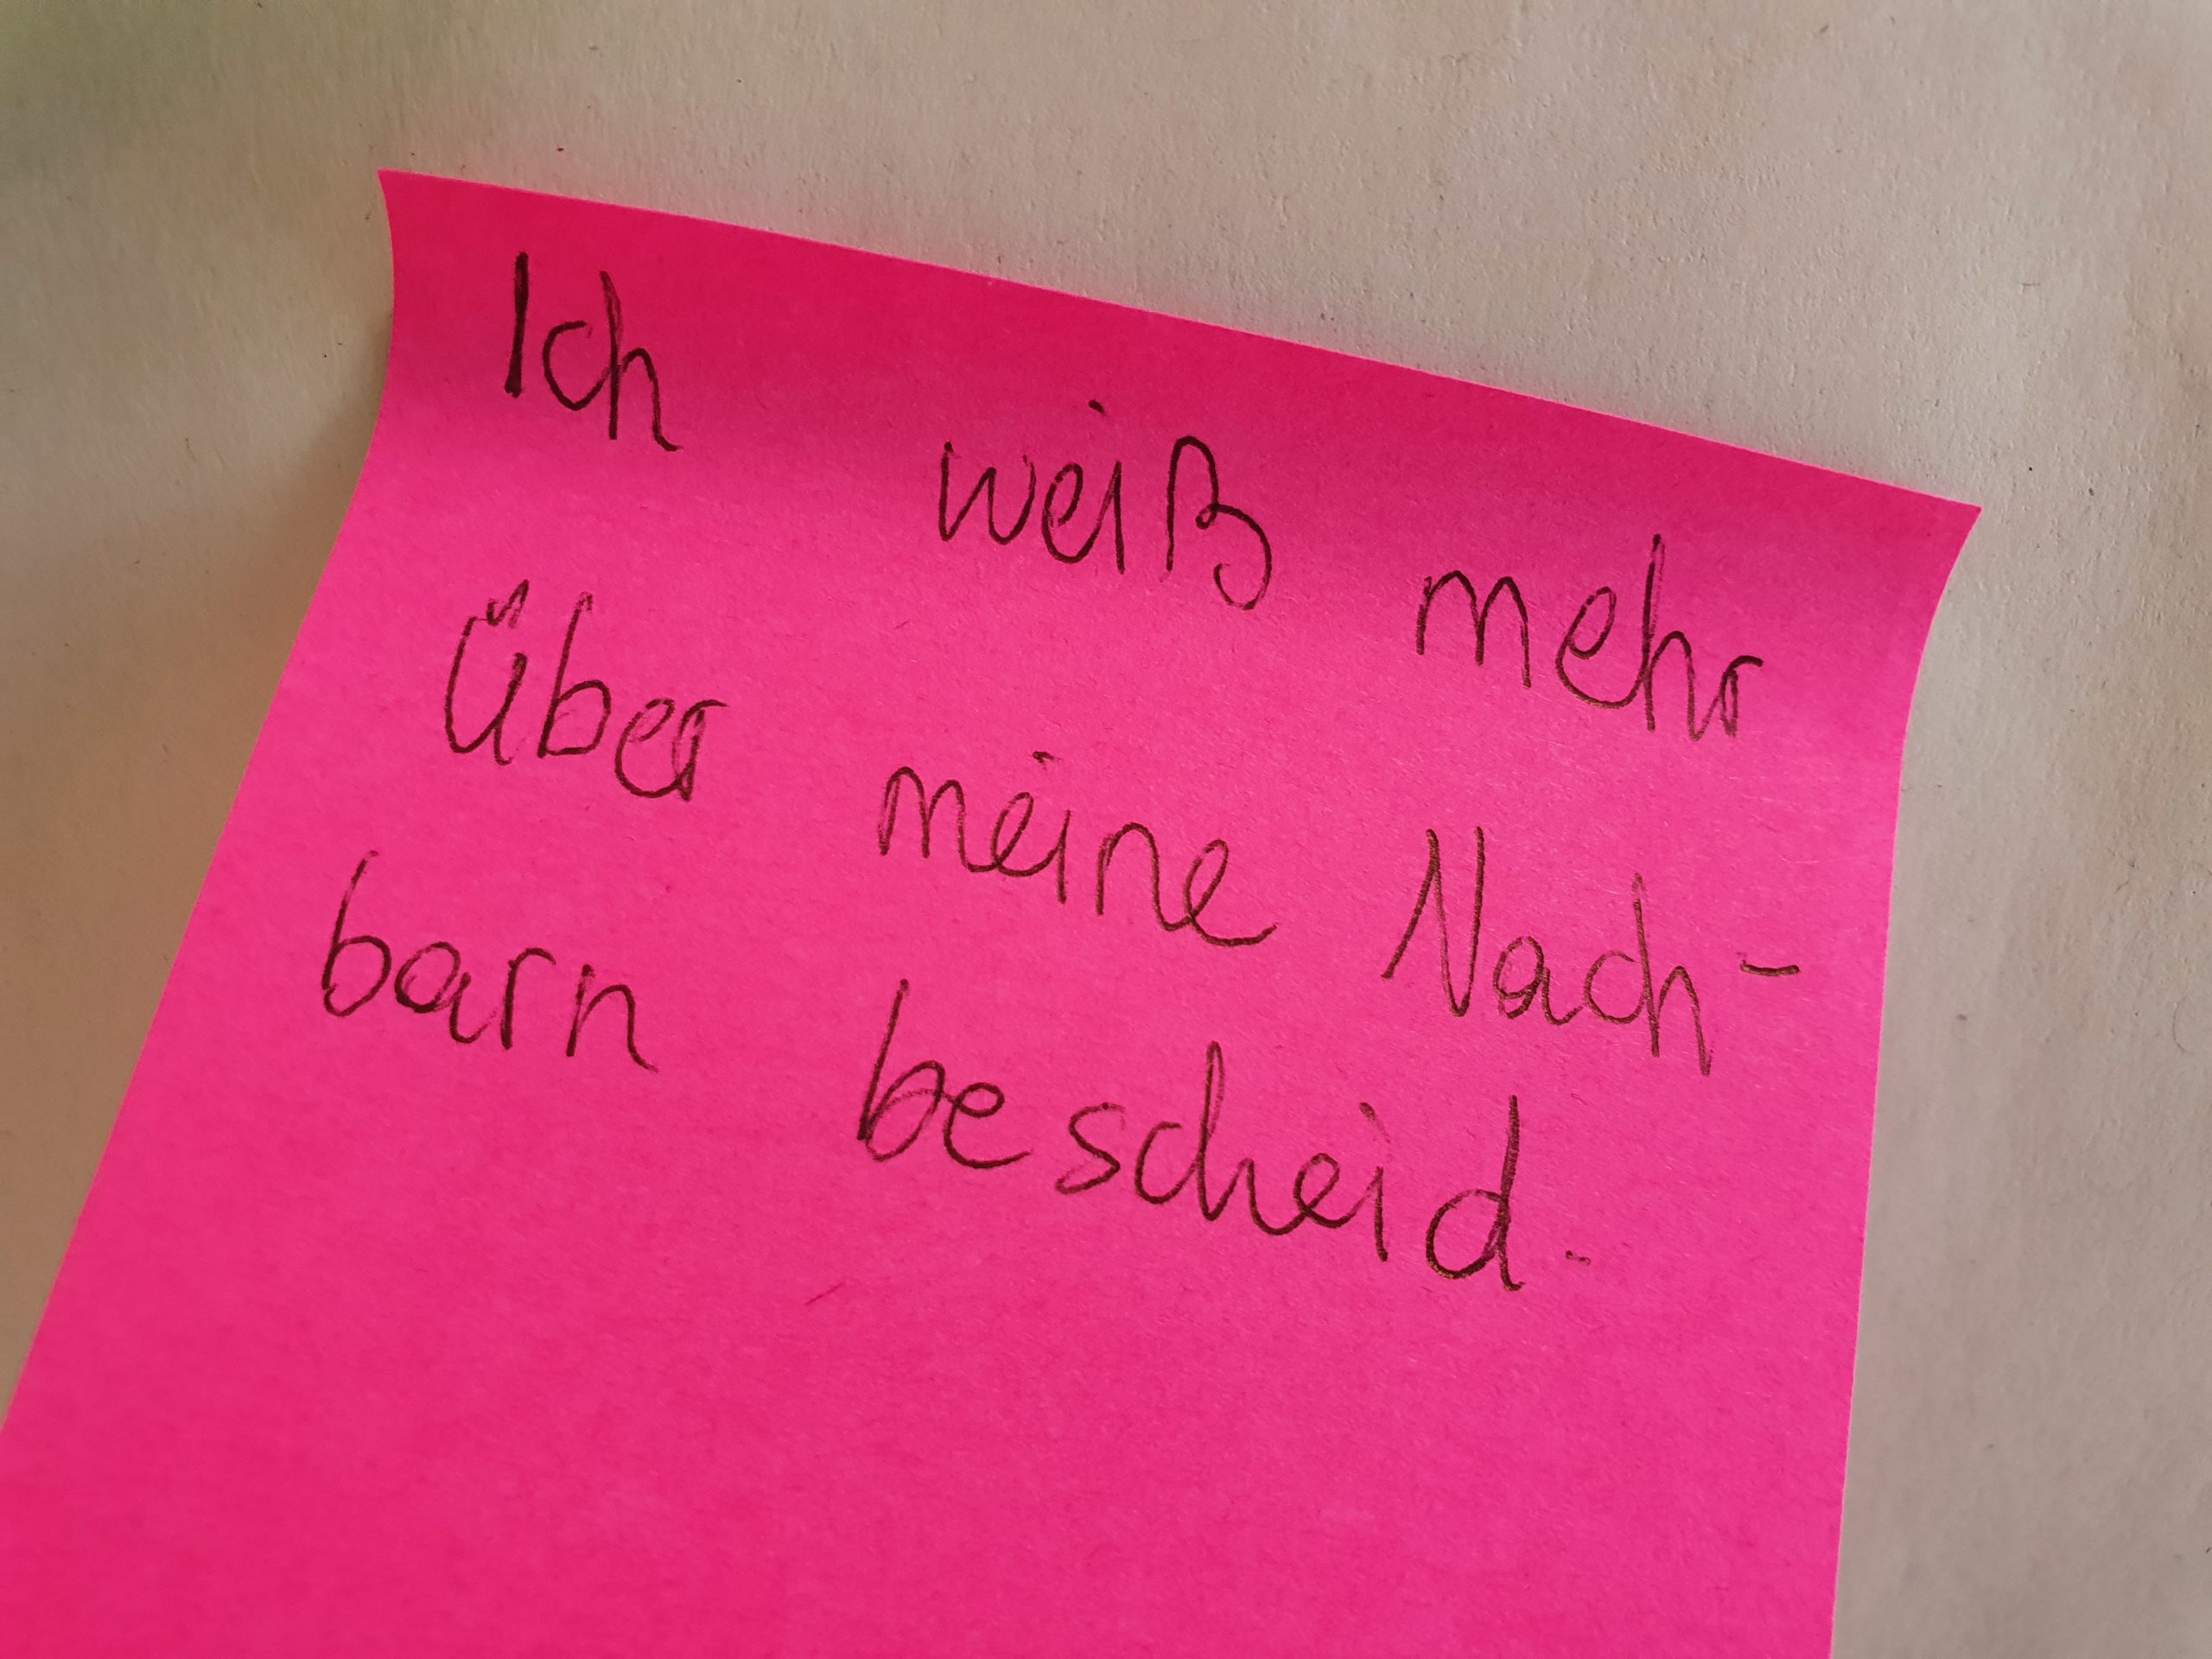 Ich weiß mehr
über meine Nach-
barn bescheid.